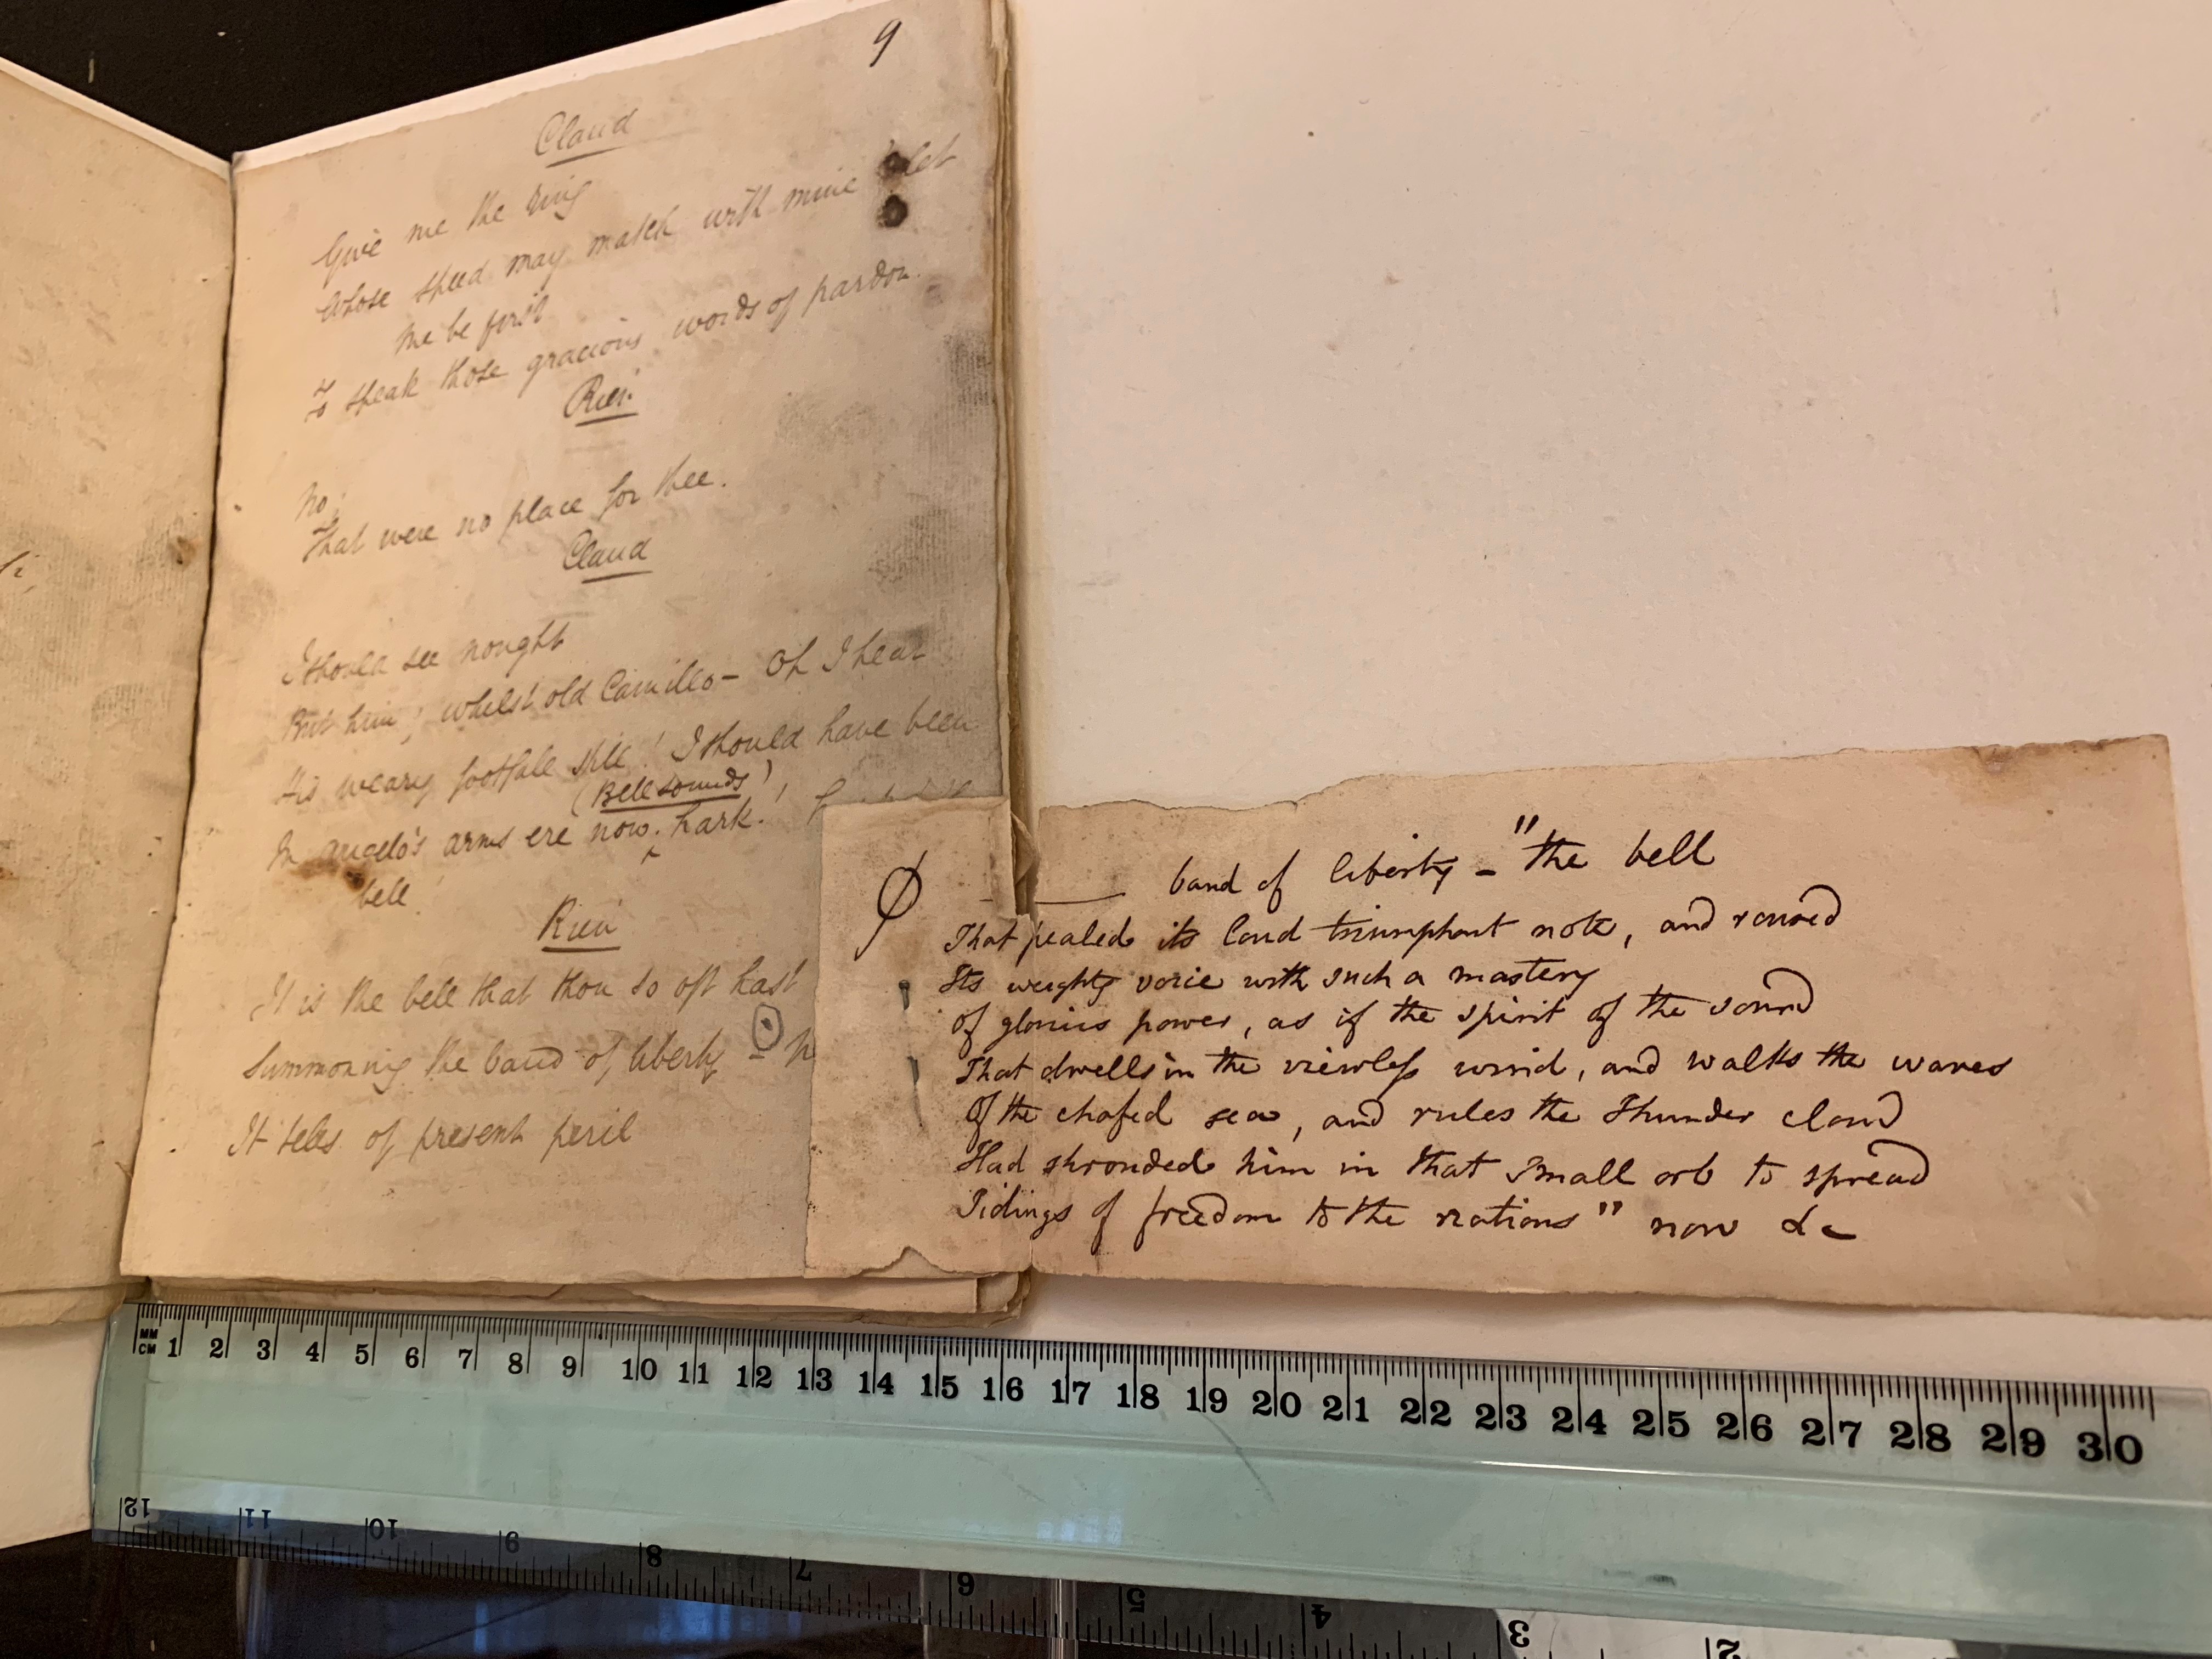 9
Claud
Give me the ring
Whose speed may match with mine let
me be first
To speak those gracious words of pardon.
Rien.
No;
That were no place for thee.
Claud
I should see nought
But him; whilst old Camillo – Oh I hear
His weary footfall still! I should have been
(Bell sounds)
In Angelo's arms ere now. hark!
bell!
Rien
It is the bell that thou so oft hast
Summoning the band of liberty –
It tells of present peril
band of liberty – "the bell
That pealed its loud triumphant note, and roused
Its weighty voice with such a mastery
Of glorious power, as if the spirit of the sound
That dwells in the viewless wind, and walks the waves
Of the chafed sea, and rules the Thunder cloud
Had shrouded him in that small orb to spread
Tidings of freedom to the nations" now &c
MM
CM 1 2 3 4 5 6 7 8 9 10 11 12 13 14 15 16 17 18 19 20 21 22 23 24 25 26 27 28 29 30
12 11 10 9 8 7 6 5 4 3 2